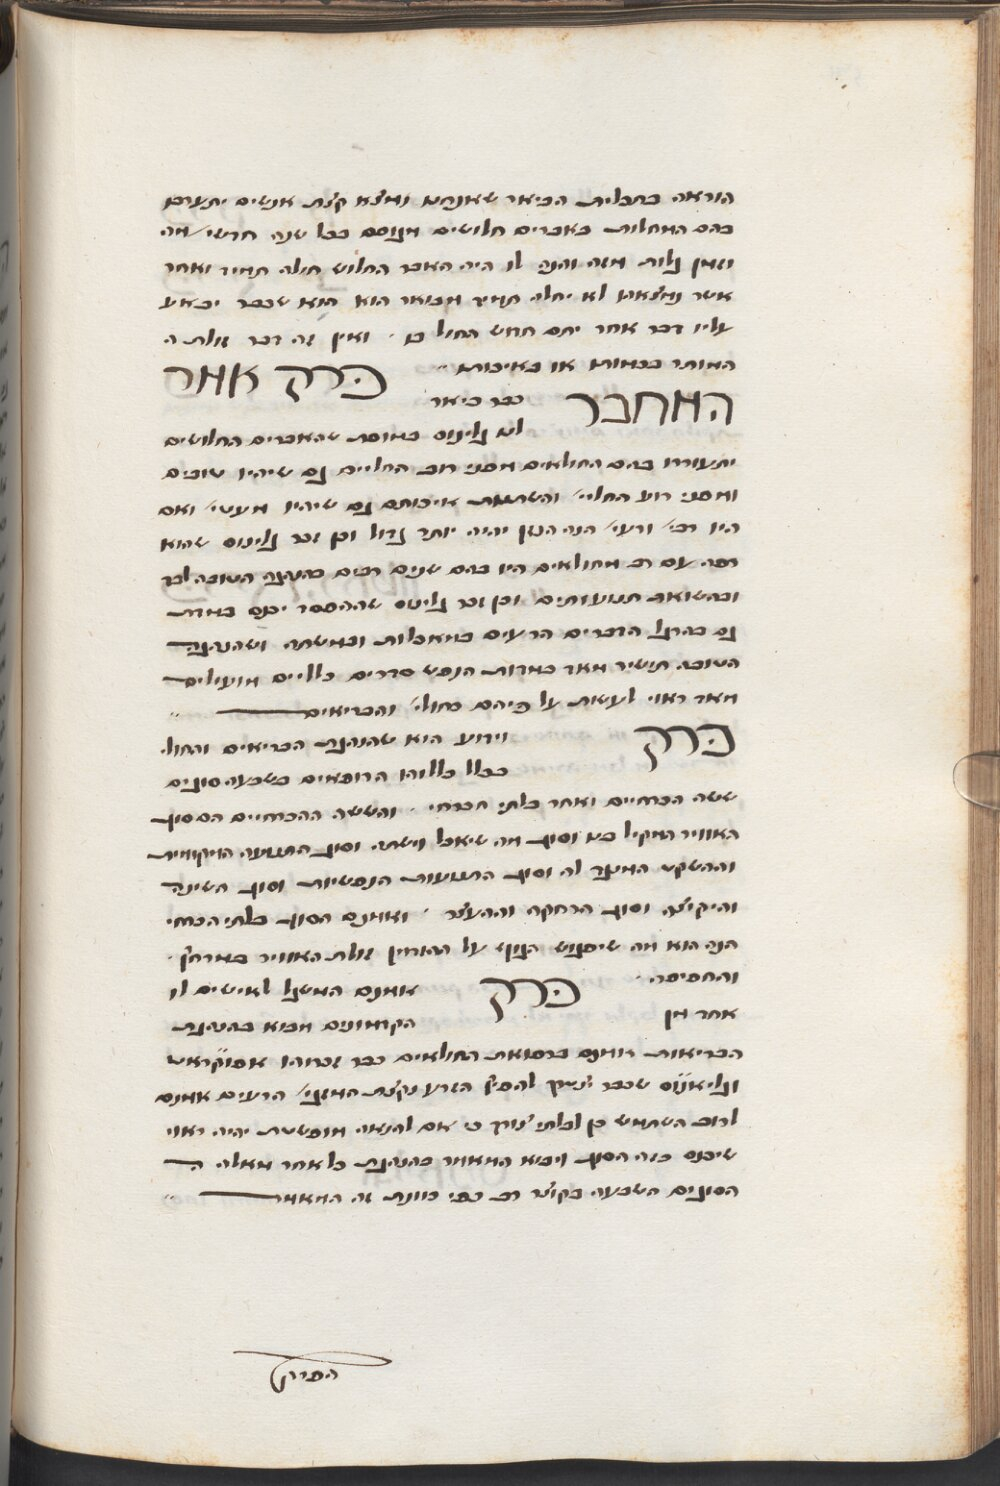 הוראה בתכלית הביאור שאנחנו נמצא קצת אנשים יתעררו
בהם המחלות באברים חלושים מנוסם בכל שנה חדשי׳ מה
וזמן גלות מזה והנה לו היה האבר החלוש חולה תמיד ואחר
אשר נמצאהו לא יחלה תמיד מבואר הוא הוא שכבר יבאע
עליו דבר אחר יתם חדוש החולי בו . ואין זה דבר זולת ה
המותר בכמותו או באיכותו
פרק אמר
המחבר כבר ביאר
לנו גלינוס במוסת שהאברים החלושים
יתעוררו בהם החולאים מפני רוב החליים גם שיהיו טובים
ומפני רוע החלי׳ והשתנות איכותם גם שיהיו מעטי׳ ואם
היו רבי׳ ורעי׳ הנה הנזק יהיה יותר גדול וכן זכר גלינוס שהוא
רפה עם רב מחולאים היו בהם שנים רבים בהנהגה הטובה לבד
ובהשואת תנועותיהם וכן זכר גלינוס שההפסד יכנס במדות
גם בהרגל הדברים הרעים במאכלות ובמשתה ושהנהגה
הטובה תישיר מאד במדות הנפש סדרים כלליים מועילים
מאד ראוי לעשות על פיהם בחולי׳ והבריאים
פרק וידוע הוא שהנהגת הבריאים והחולי׳
בכלל כללוהו הרופאים בשבעה סוגים
ששה הכרחיים ואחד בלתי הכרחי . והששה ההכרחיים הם סוג
האוויר המקיף בנו וסוג מה שיאכל וישתה וסוג התנועה הגופנית
וההשקט המנגד לה וסוג התנועות הנפשיות וסוג השינה
והיקיצה וסוג הרחקה וההעצר . ואמנם הסוג בלתי הכרחי
הנה הוא מה שיפגוש הגוף על ההזדמן זולת האוויר כמרחץ .
והחפיפה .
פרק אמנם המשגל לאישים לו
אחר מן הקדמונים מבוא בהנהגת
הבריאות ואמנם ברפואת החולאים כבר זכרוהו אפוקראט
וגליאנוס שכבר יצטרך להפיץ הזרע בקצת המזגי׳ הרעים אמנם
לרוב השתמש בו לבלתי צורך כי אם להנאה מופשטת יהיה ראוי
שיכנס בזה הסוג ויבוא המאמר בהנהגת כל אחד מאלה ה
הסוגים השבעה בקוצר רב כפי כוונת זה המאמר
הפרק